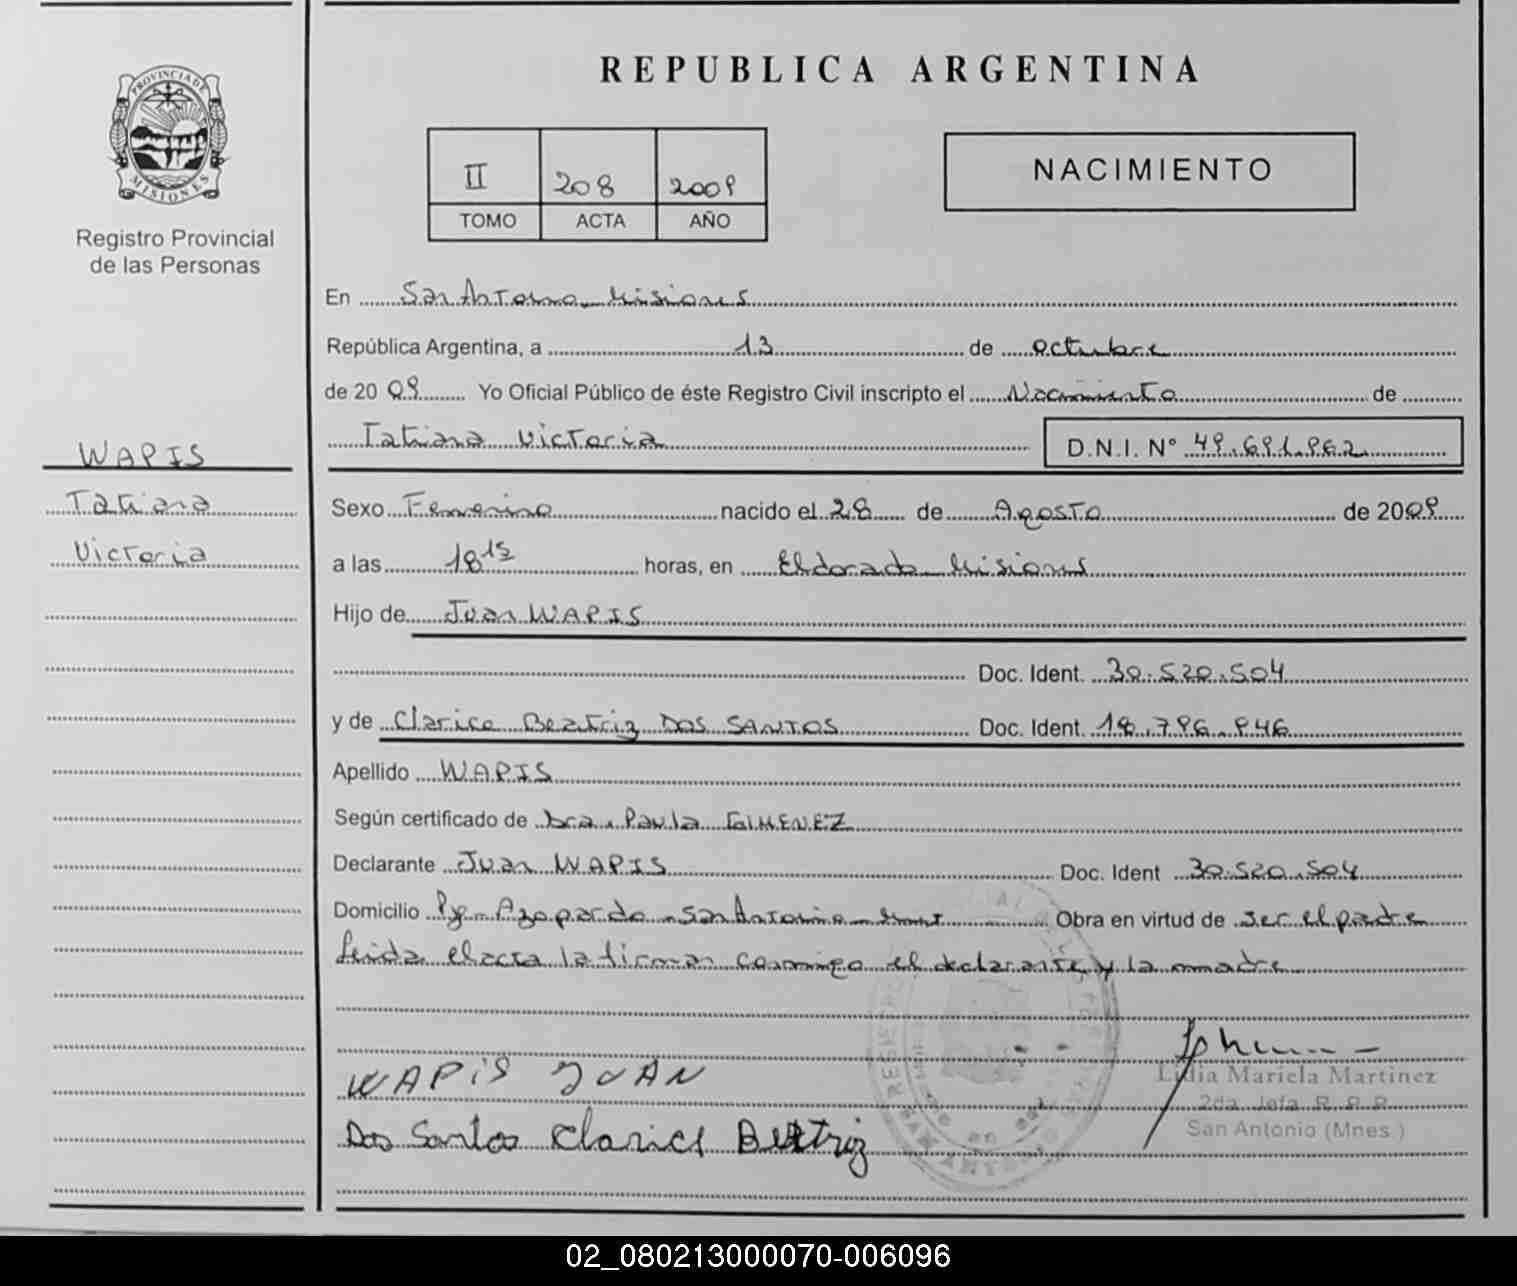 REPUBLICA ARGENTINA
PROVINCIA DE
MISIONES
Registro Provincial
de las Personas
II 208 2009
TOMO ACTA AÑO
NACIMIENTO
En San Antonio Misiones
República Argentina, a 13 de octubre
de 20 09 Yo Oficial Público de éste Registro Civil inscripto el Nacimiento de
Tatiana Victoria D.N.I. N° 49.691.962
WAPIS
Tatiana
Victoria
Sexo Femenino nacido el 28 de Agosto de 2009
a las 18 15 horas, en Eldorado Misiones
Hijo de Juan WAPIS
Doc. Ident. 30.520.504
y de Clarice Beatriz DOS SANTOS Doc. Ident. 18.796.946
Apellido WAPIS
Según certificado de Dra. Paula GIMENEZ
Declarante Juan WAPIS Doc. Ident 30.520.504
Domicilio Pje. Azopardo - San Antonio - Obra en virtud de ser el padre
Leida el acta la firman conmigo el declarante y la madre
WAPiS JUAN
Dos Santos Clarice Beatriz
Lidia Mariela Martinez
2da. Jefa R. P. P.
San Antonio (Mnes.)
SAN ANTONIO
02_080213000070-006096